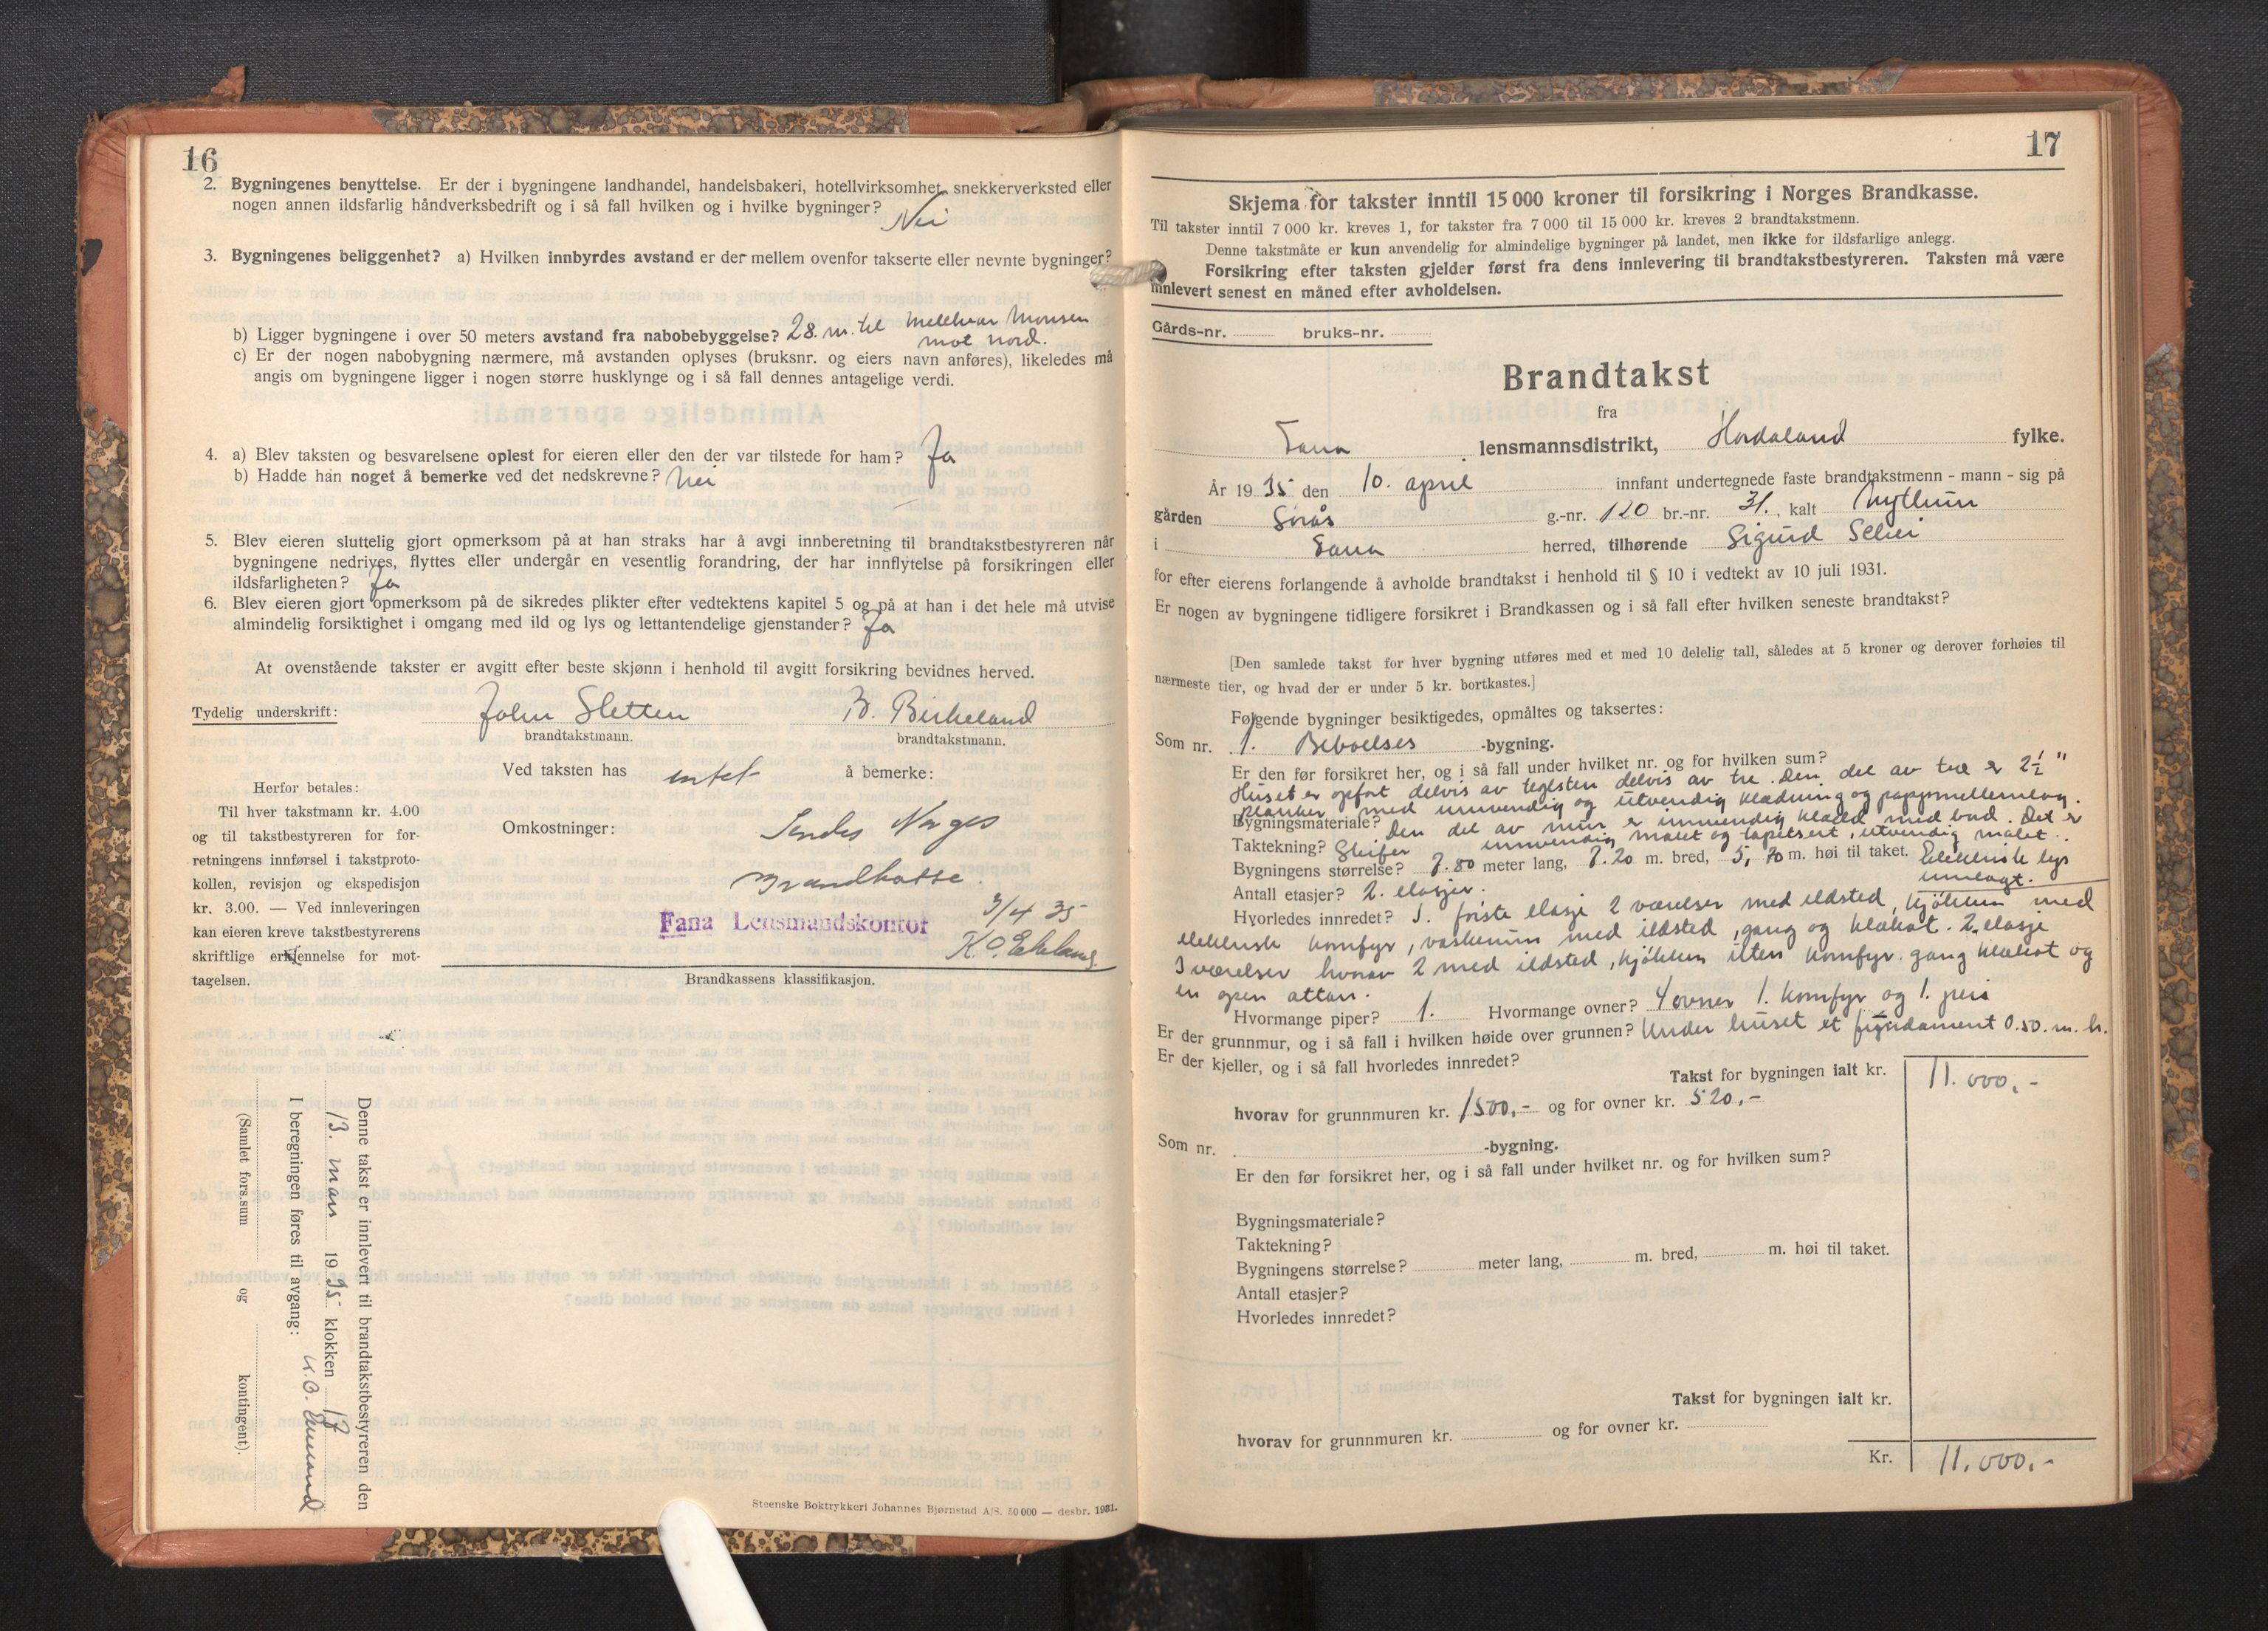 16
2. Bygningenes benyttelse. Er der i bygningene landhandel, handelsbakeri, hotellvirksomhet, snekkerverksted eller
nogen annen ildsfarlig håndverksbedrift og i så fall hvilken og i hvilke bygninger?
Nei
3. Bygningenes beliggenhet? a) Hvilken innbyrdes avstand er der mellem ovenfor takserte eller nevnte bygninger?
b) Ligger bygningene i over 50 meters avstand fra nabobebyggelse? 28. m. til Monsen
mot nord.
c) Er der nogen nabobygning nærmere, må avstanden oplyses (bruksnr. og eiers navn anføres), likeledes må
angis om bygningene ligger i nogen større husklynge og i så fall dennes antagelige verdi.
4. a) Blev taksten og besvarelsene oplest for eieren eller den der var tilstede for ham? Ja
b) Hadde han noget å bemerke ved det nedskrevne? Nei
5. Blev eieren sluttelig gjort opmerksom på at han straks har å avgi innberetning til brandtakstbestyreren når
bygningene nedrives, flyttes eller undergår en vesentlig forandring, der har innflytelse på forsikringen eller
ildsfarligheten? Ja
6. Blev eieren gjort opmerksom på de sikredes plikter efter vedtektens kapitel 5 og på at han i det hele må utvise
almindelig forsiktighet i omgang med ild og lys og lettantendelige gjenstander? Ja
At ovenstående takster er avgitt efter beste skjønn i henhold til avgitt forsikring bevidnes herved.
Tydelig underskrift: John Sletten B. Birkeland
brandtakstmann. brandtakstmann.
Ved taksten has intet å bemerke:
Herfor betales:
Til hver takstmann kr. 4.00
og til takstbestyreren for for-
retningens innførsel i takstproto-
kollen, revisjon og ekspedisjon
kr. 3.00. — Ved innleveringen
kan eieren kreve takstbestyrerens
skriftlige erkjennelse for mot-
tagelsen.
Omkostninger: Sendes Norges
Brandkasse.
Fana Lensmandskontor 3/4 35
Brandkassens klassifikasjon.
Denne takst er innlevert til brandtakstbestyreren den
13. mars 1935 klokken 12
I beregningen føres til avgang:
(Samlet fors.sum og kontingent).
Steenske Boktrykkeri Johannes Bjørnstad A/S. 50 000 — desbr. 1931.
17
Skjema for takster inntil 15 000 kroner til forsikring i Norges Brandkasse.
Til takster inntil 7 000 kr. kreves 1, for takster fra 7 000 til 15 000 kr. kreves 2 brandtakstmenn.
Denne takstmåte er kun anvendelig for almindelige bygninger på landet, men ikke for ildsfarlige anlegg.
Forsikring efter taksten gjelder først fra dens innlevering til brandtakstbestyreren. Taksten må være
innlevert senest en måned efter avholdelsen.
Gårds-nr. bruks-nr.
Brandtakst
fra
Fana lensmannsdistrikt, Hordaland fylke.
År 1935 den 10. april innfant undertegnede faste brandtakstmenn - mann - sig på
gården Sørås g.-nr. 120 br.-nr. 31., kalt Nytun
i Fana herred, tilhørende Sigurd
for efter eierens forlangende å avholde brandtakst i henhold til § 10 i vedtekt av 10 juli 1931.
Er nogen av bygningene tidligere forsikret i Brandkassen og i så fall efter hvilken seneste brandtakst?
[Den samlede takst for hver bygning utføres med et med 10 delelig tall, således at 5 kroner og derover forhøies til
nærmeste tier, og hvad der er under 5 kr. bortkastes.]
Følgende bygninger besiktigedes, opmåltes og taksertes:
Som nr. 1. Beboelses -bygning.
Er den før forsikret her, og i så fall under hvilket nr. og for hvilken sum?
Huset er opført delvis av teglsten delvis av tre. Den del av tre er 2½"
planker med innvendig og utvendig klædning og pappmellemlag.
Bygningsmateriale? Den del av mur er innvendig klædd med bord. Det er
innvendig malet og tapetsert, utvendig malet.
Taktekning? Skifer
Bygningens størrelse? 7.80 meter lang, 7.20 m. bred, 5,70 m. høi til taket. Elektriske lys
innlagt.
Antall etasjer? 2. etasjer.
Hvorledes innredet? I. første etasje 2 værelser med ildsted, kjøkken med
elektrisk komfyr, vaskerum med ildsted, gang og klosset. 2. etasje
3 værelser hvorav 2 med ildsted, kjøkken uten komfyr. gang klosset og
en open altan.
Hvormange piper? 1. Hvormange ovner? 4 ovner 1. komfyr og 1. peis
Er der grunnmur, og i så fall i hvilken høide over grunnen? Under huset et fundament 0.50. m. h.
Er der kjeller, og i så fall hvorledes innredet?
Takst for bygningen ialt kr. 11.000,-
hvorav for grunnmuren kr. 1500,- og for ovner kr. 520,-
Som nr. -bygning.
Er den før forsikret her, og i så fall under hvilket nr. og for hvilken sum?
Bygningsmateriale?
Taktekning?
Bygningens størrelse? meter lang, m. bred, m. høi til taket.
Antall etasjer?
Hvorledes innredet?
Takst for bygningen ialt kr.
hvorav for grunnmuren kr. og for ovner kr.
Kr. 11.000.-